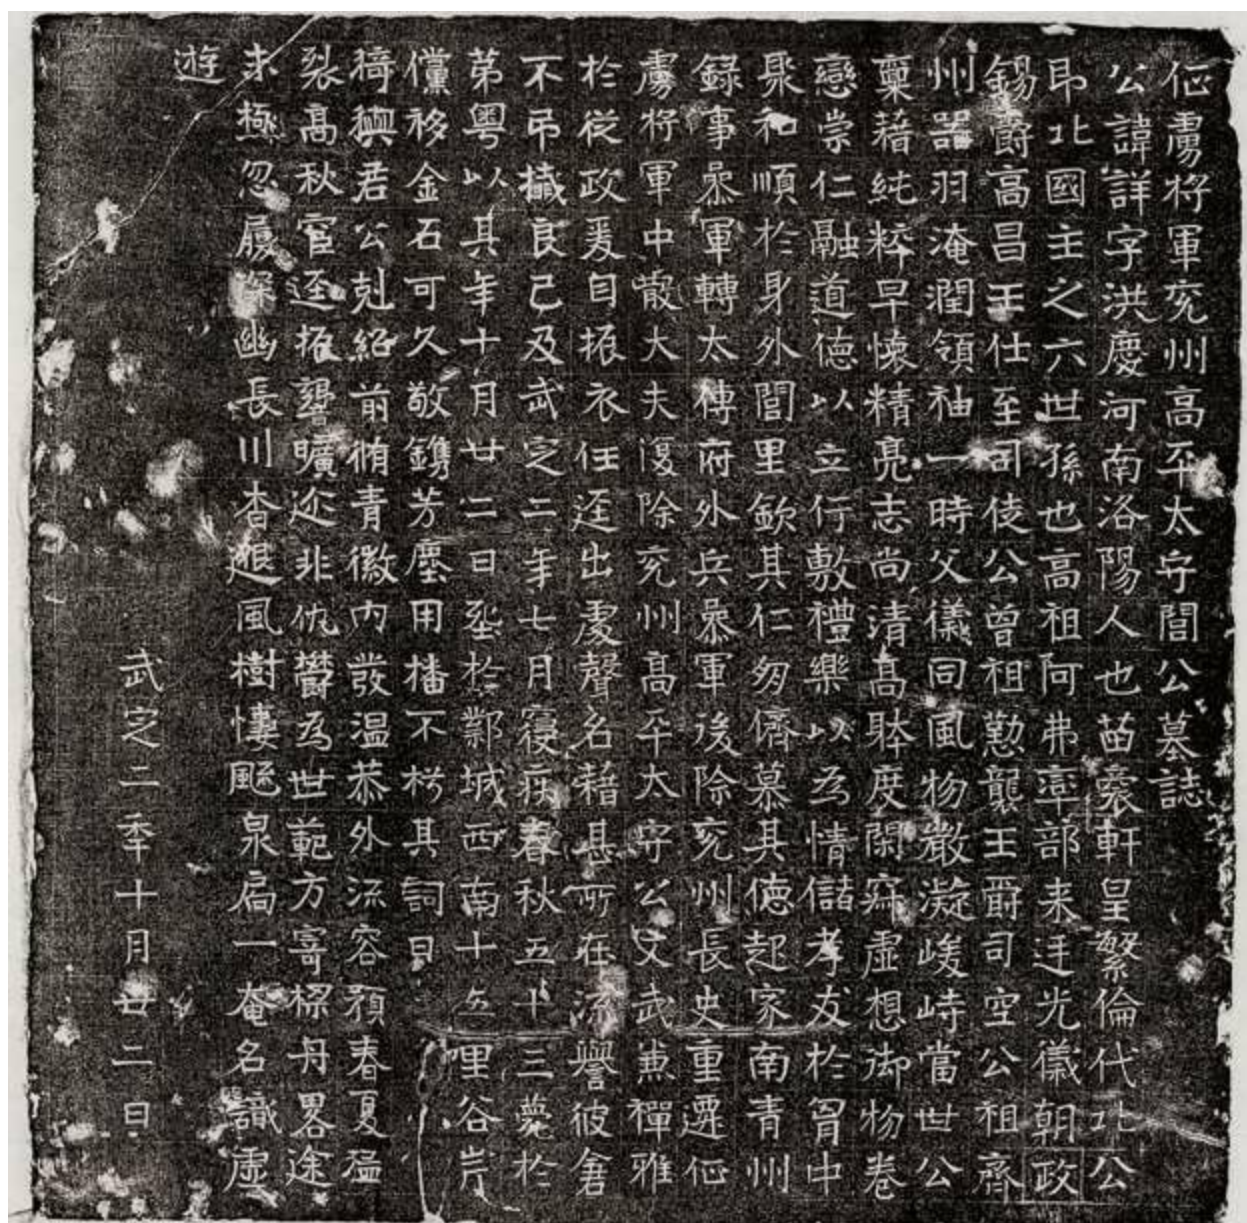 征虜將軍兗州高平太守閭公墓誌
公諱詳字洪慶河南洛陽人也苗裔軒皇繁倫代北公
即北國主之六世孫也高祖阿弗率部来廷光儀朝政
錫爵高昌王仕至司徒公曾祖懃襲王爵司空公祖齊
州器羽淹潤領袖一時父儀同風物嚴凝峻峙當世公
稟藉純粹早懷精亮志尚清高器度閑寂虛想御物卷
戀崇仁融道德以立行敷禮樂以為情儲孝友於胷中
聚和順於身外閭里欽其仁朋儕慕其德起家南青州
録事叅軍轉太傅府外兵叅軍後除兗州長史重遷征
虜將軍中散大夫復除兗州高平太守公文武兼禪雅
於從政爰自振衣任逕出處聲名藉甚所在流譽彼倉
不弔殲良已及武定二年七月寢疾春秋五十三薨於
第粵以其年十月廿二日塟於鄴城西南十五里谷岸
儻移金石可久敬鐫芳塵用播不朽其詞曰
猗歟君公剋紹前脩青徽内發温恭外流容顏春夏猛
裂高秋官逕振譽曠迩非仇欝為世範方寄棟舟畧途
未極忽履深幽長川杳邈風樹悽飋泉扃一奄名識虛
遊
武定二年十月廿二日